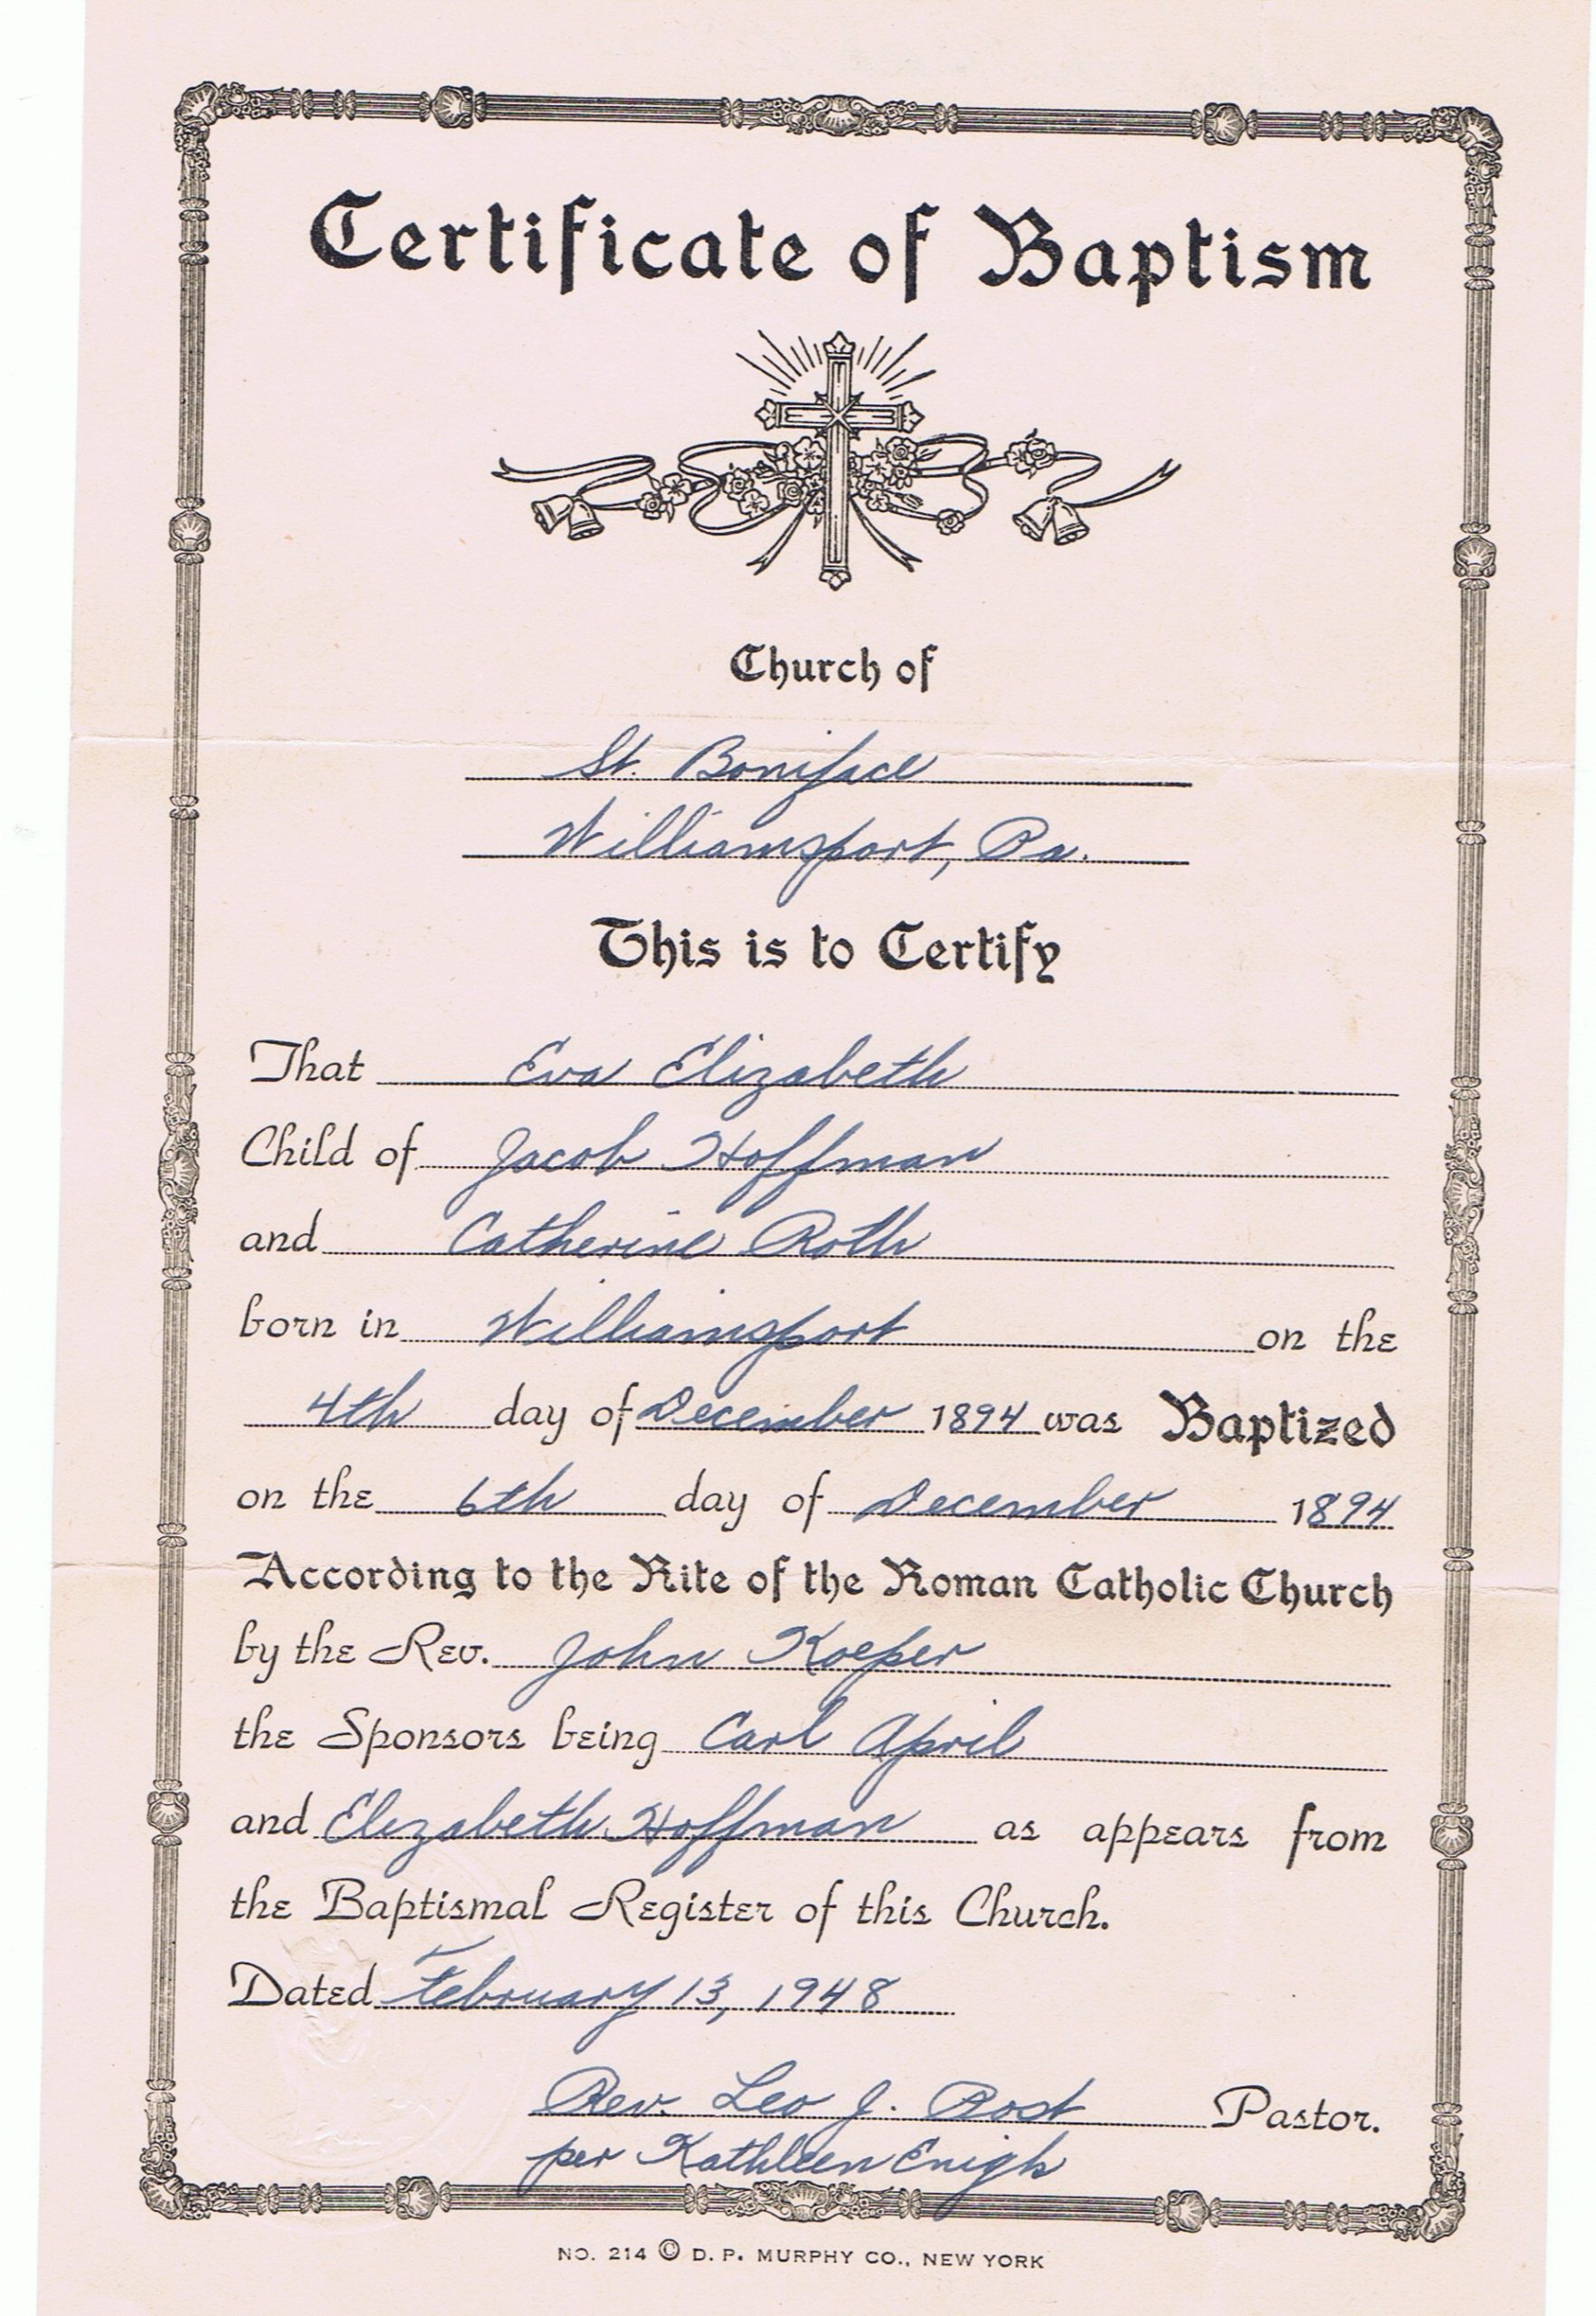 Certificate of Baptism
Church of
St. Boniface
Williamsport, Pa.
This is to Certify
That Eva Elizabeth
Child of Jacob Hoffman
and Catherine Roth
born in Williamsport on the
4th day of December 1894 was Baptized
on the 6th day of December 1894
According to the Rite of the Roman Catholic Church
by the Rev. John Koeper
the Sponsors being Carl April
and Elizabeth Hoffman as appears from
the Baptismal Register of this Church.
Dated February 13, 1948
Rev. Leo J. Post Pastor.
per Kathleen Enigh
NO. 214 © D. P. MURPHY CO., NEW YORK